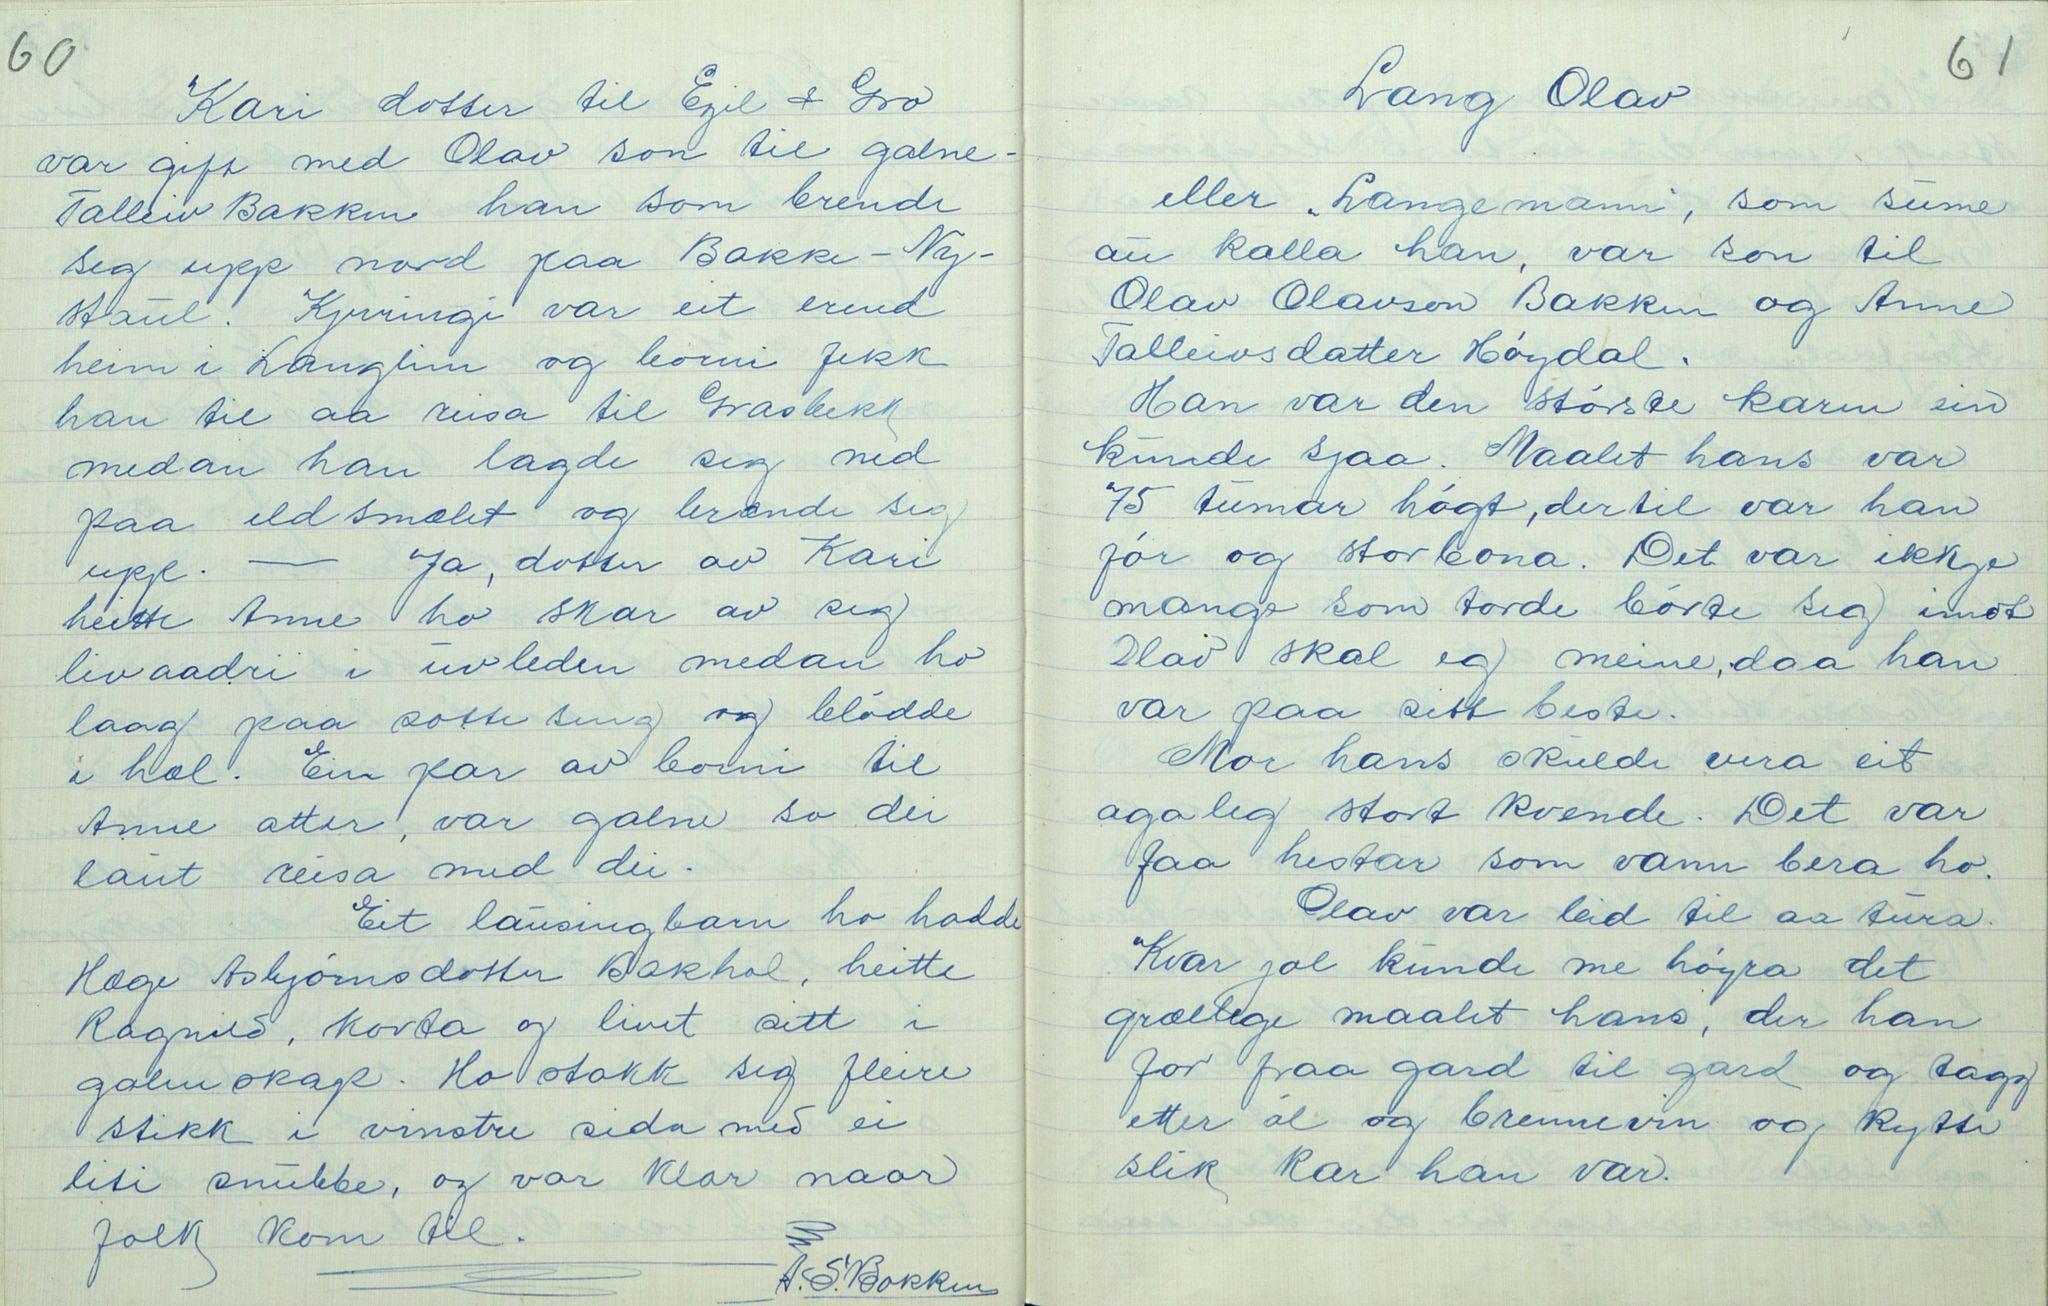 60
Kari dotter til Egil & Gro
var gift med Olav son til galne-
Talleiv Bakken han som brende
seg upp nord paa Bakke-Ny-
staul. Kjerringi var eit erend
heim i Langlim og borni fekk
han til aa reisa til Grasbekk
medan han lagde seg ned
paa eldsmælet og brende seg
upp. — Ja, dotter av Kari
heitte Anne ho skar av seg
livaadri i uvleden medan ho
laag paa sotteseng og blødde
i hæl. Ein par av borni til
Anne atter, var galne so dei
laut reisa med dei.
Eit lausingbarn ho hadde
Hæge Asbjórnsdotter Bakhol, heitte
Ragnild, korta og livet sitt i
galenskap. Ho stakk seg fleire
stikk i vinstre sida med ei
liti snubbe, og var klar naar
folk kom til.
A. S. Bakken
61
Lang Olav
eller „Langemann", som sume
au kalla han, var son til
Olav Olavson Bakken og Anne
Talleivsdatter Høgdal.
Han var den største karen ein
kunde sjaa. Maalet hans var
75 tumar høgt, dertil var han
fór og storbona. Det var ikkje
mange som torde bórte seg imot
Olav skal eg meine, daa han
var paa sitt beste.
Mor hans skulde vera eit
agaleg stort kvende. Det var
faa hestar som vann bera ho.
Olav var leid til aa tura.
Kvar jol kunde me høyra det
grællege maalet hans, der han
for fraa gard til gard og tagg
etter øl og brennevin og kytte
slik kar han var.